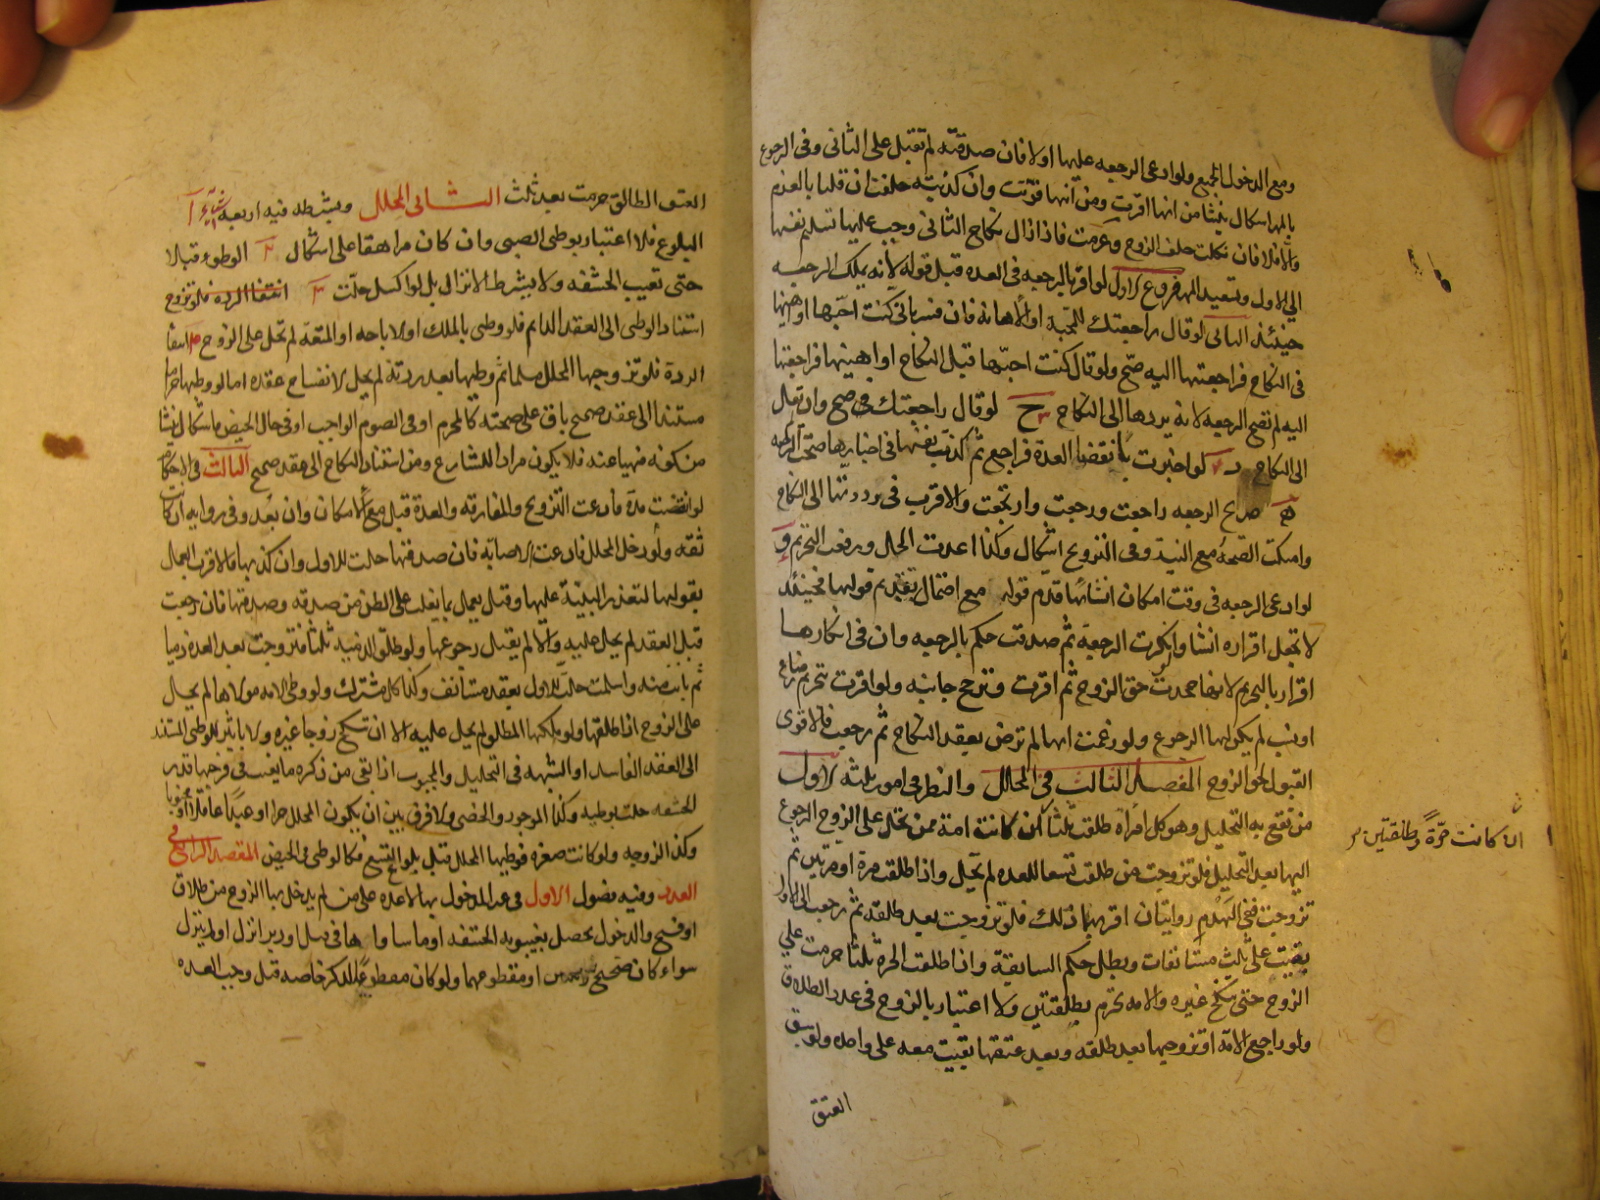 ومع الدخول الجميع ولو ادعى الرجعه عليها اولا فان صدقته لم تقبل على الثانى وفى الرجوع
بالمهر اشكال ينشا من انها اقرت ومن انها فوّتت وان كذبته حلفت ان قلنا بالغرم
والا فلا فان نكلت حلف الزوج وغرمت فاذا زال نكاح الثانى وجب عليها تسليم نفسها
الى الاول وتستعيد المهر فروع الاول لو اقر بالرجعه فى العده قبل قوله لانه يملك الرجعه
حينئذ الثانى لو قال راجعتك للمحبة او للاهانة فان فسر بانى كنت احبّها او اهينها
فى النكاح فراجعتها اليه صحّ ولو قال كنت احبّها قبل النكاح او اهينها فراجعتها
اليه لم تصح الرجعه لانه يردها الى النكاح ج لو قال راجعتك صح وان لم يقل
الى النكاح د لو اخبرت بانقضاء العدة فراجع ثم كذبت نفسها فى اخبارها صحت الرجعه
ه صريح الرجعه راجعت ورجعت وارتجعت والاقرب فى رددتها الى النكاح
وامسكت الصحة مع النية وفى التزويج اشكال وكذا اعدت الحل ورفعت التحريم و
لو ادعى الرجعه فى وقت امكان انشائها قدم قوله مع احتمال تقديم قولها فحينئذ
لا تجعل اقراره انشا ولو انكرت الرجعة ثم صدقت حكم بالرجعه وان فى انكارها
اقرار بالتحريم لانها جحدت حق الزوج ثم اقرت وترجح جانبه ولو اقرت بتحريم رضاع
او نسب لم يكن لها الرجوع ولو زعمت انها لم ترض بعقد النكاح ثم رجعت فالاقوى
القبول لحق الزوج المقصد الثالث فى المحلل والنظر فى امور ثلثه الاول
من تقع به التحليل وهو كل امرأة طلقت ثلثا لكن كانت امة ممن تحل على الزوج الرجوع
اليها بعد التحليل فلو تزوجت من طلقت تسعا للعده لم تحل واذا طلقت مرة او مرتين ثم
تزوجت ففى الهدم روايتان اقربهما ذلك فلو تزوجت بعد طلقه ثم رجعت الى الاول
بقيت على ثلث مستانفات وبطل حكم السابقة واذا طلقت الحرة ثلثا حرمت على
الزوج حتى تنكح غيره والامه تحرم بطلقتين ولا اعتبار بالزوج فى عدد الطلاق
ولو راجع الامة او تزوجها بعد طلقه وبعد عتقها بقيت معه على واحده ولو سبق
العتق
ان كانت حرّة وطلقتين
العتق الطلاق حرمت بعد ثلث الثانى المحلل ويشترط فيه اربعه اشياء آ
البلوغ فلا اعتبار بوطى الصبى وان كان مراهقا على اشكال ب الوطوء قبلا
حتى تغيب الحشفه ولا يشترط الانزال بل لو اكسل حلت ج
استناد الوطى الى العقد الدايم فلو وطى بالملك او الاباحه او المتعة لم تحل على الزوج د انتفا
الردة فلو تزوجها المحلل مسلما ثم وطيها بعد ردته لم يحل لانفساخ عقده اما لو وطيها حراما
مستندا الى عقد صحيح باق على صحته كالمحرم او فى الصوم الواجب او فى حال الحيض فاشكال ينشا
من كونه منهيا عنه فلا يكون مرادا للشارع ومن استناد النكاح الى عقد صحيح الثالث فى الاحكام
لو انقضت مدة فادعت التزويج والمفارقه والعدة قبل مع الامكان وان بعد وفى روايه ان كانت
ثقه ولو دخل المحلل فادعت الاصابة فان صدقها حلت للاول وان كذبها فالاقرب العمل
بقولها لتعذر البينة عليها وقيل يعمل بما يغلب على الظن من صدقه وصدقها فان رجعت
قبل العقد لم يحل عليه والا لم يقبل رجوعها ولو طلق الذميه ثلثا فتزوجت بعد العدة ذميا
ثم بانت منه واسلمت حلت للاول بعقد مستانف وكذا كل مشترك ولو وطى الامه مولاها لم يحل
على الزوج اذا طلقها ولو ملكها المطلق لم يحل عليه الا ان تنكح زوجا غيره ولا تاثير للوطى المستند
الى العقد الفاسد او الشبهه فى التحليل والمجبوب اذا بقى من ذكره ما يغيب فى فرجها قدر
الحشفه حلت بوطيه وكذا الموجور والخصى ولا فرق بين ان يكون المحلل حرا او عبدا عاقلا او مجنونا
وكذا الزوجه ولو كانت صغيره فوطيها المحلل قبل بلوغ التسع فكالوطى فى الحيض المقصد الرابع فى
العدد وفيه فصول الاول فى عد المدخول بها لا عده على من لم يدخل بها الزوج من طلاق
او فسخ والدخول يحصل بغيبوبه الحشفه او ما ساواها فى قبل او دبر انزل او لم ينزل
سواء كان صحيح او مقطوعهما ولو كان مقطوع الذكر خاصه قيل وجبت العده